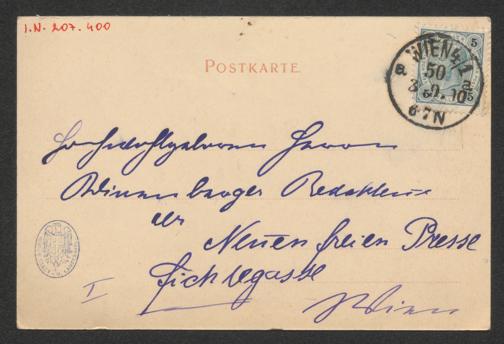 I.N. 207.400
POSTKARTE
5
WIEN 4/1
50
a a
6-7N
Hochwohlgeboren Herrn
Redakteur
der
Neuen freien Presse
Fichtegasse
I
Wien